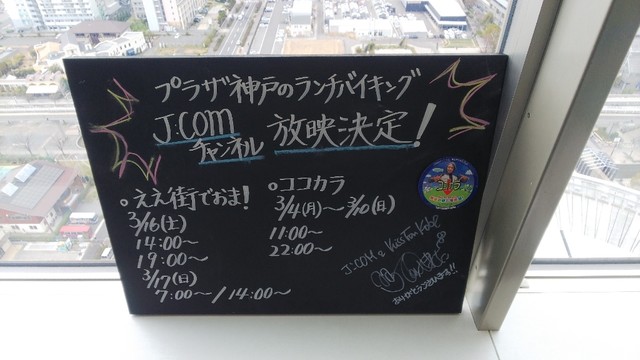 プラザ神戸のランチバイキング
J:COM
チャンネル 放映決定!
・ええ街でおま!
3/16(土)
14:00〜
19:00〜
3/17(日)
7:00〜/14:00〜
・ココカラ
3/4(月)〜3/10(日)
11:00〜
22:00〜
J:COM & Kiss FM Kobe
ありがとうございます!!